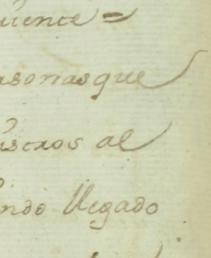 uente =
asonasque
istros al
ando llegado